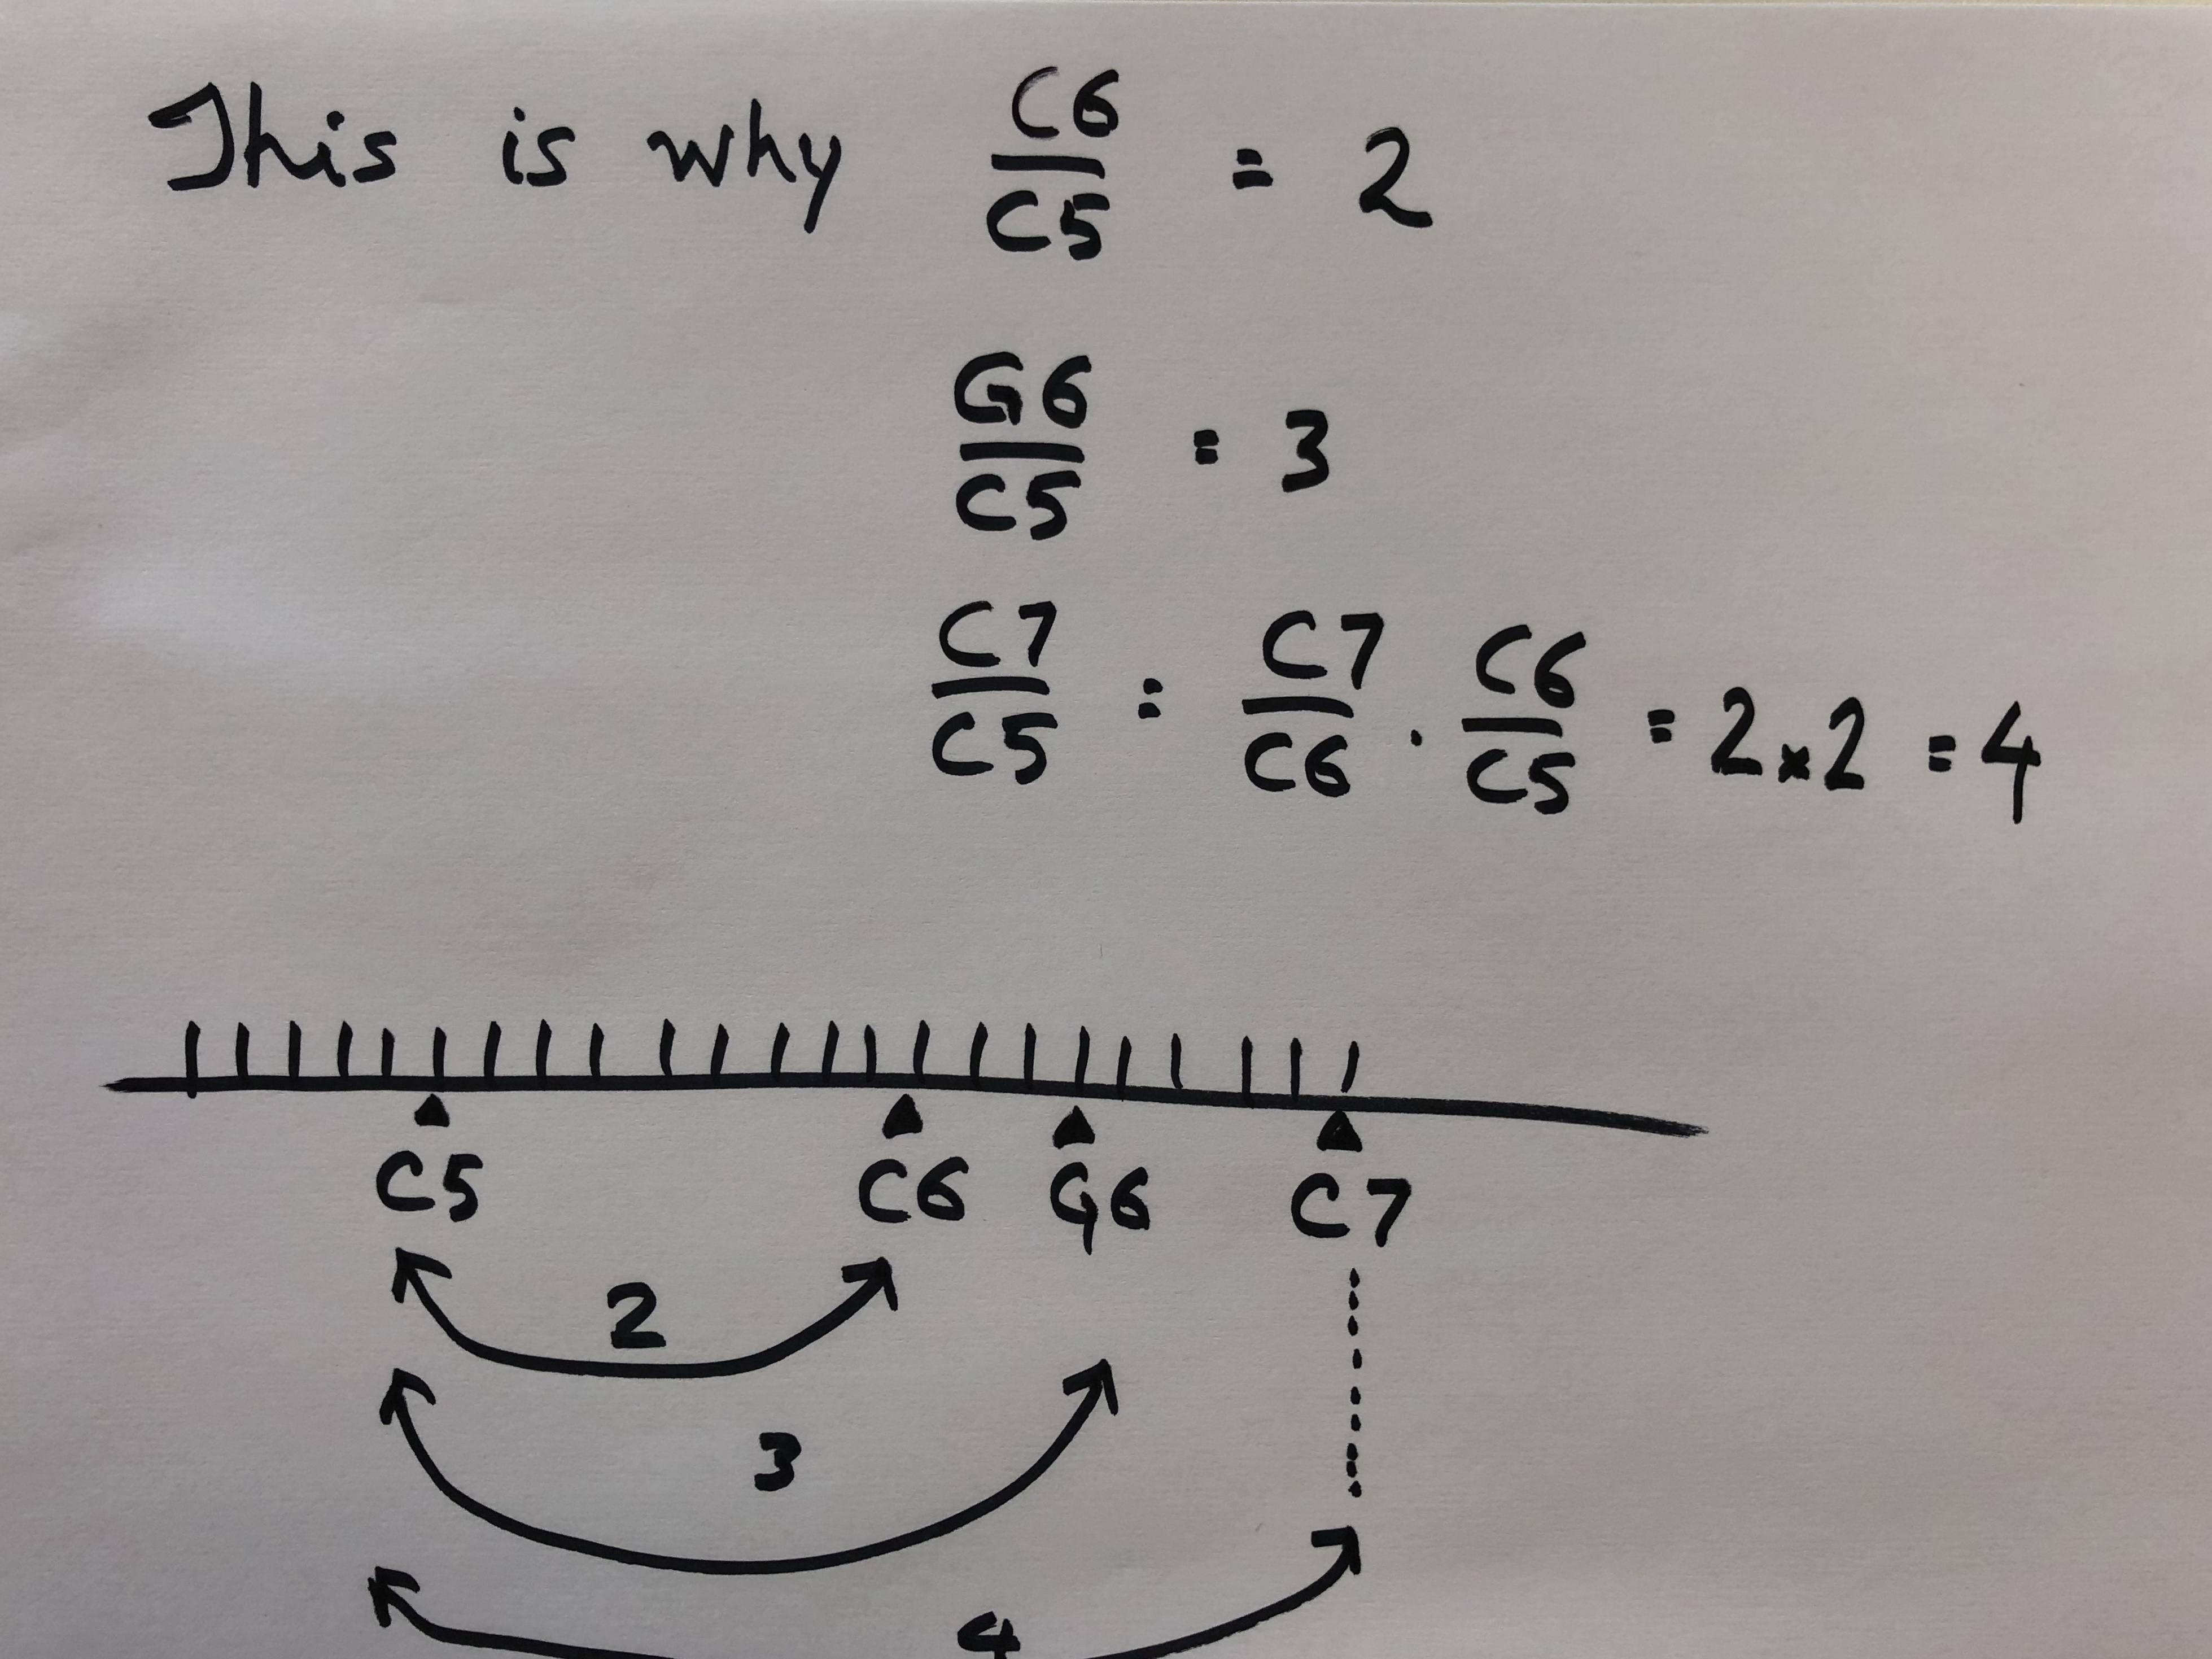 This is why C6/C5 = 2
G6/C5 = 3
C7/C5 = C7/C6 . C6/C5 = 2x2 = 4
C5 C6 G6 C7
2
3
4